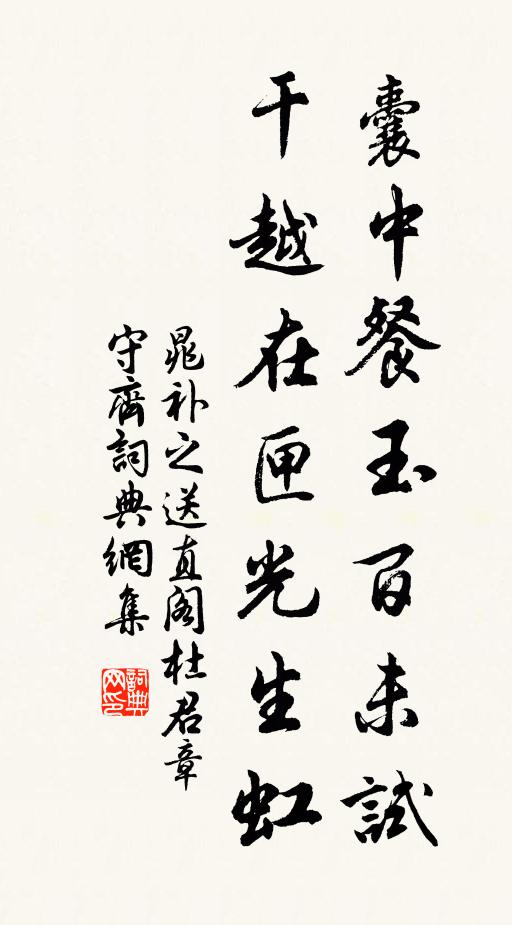 囊中餐玉百未試
干越在匣光生虹
晁补之送直阁杜君章
守齊詞典網集
詞典网印